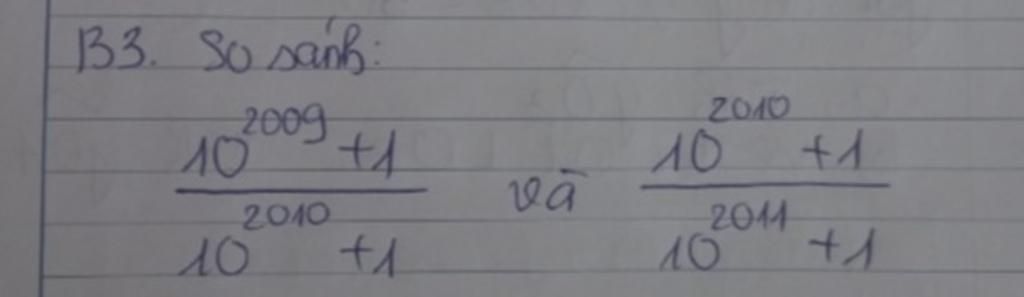 B3. So sánh:
10^2009 +1 / 10^2010 +1 và 10^2010 +1 / 10^2011 +1